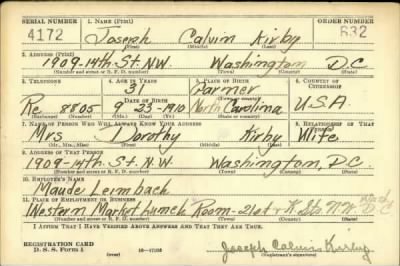 SERIAL NUMBER 1. NAME (Print) ORDER NUMBER
4172 Joseph Calvin Kirby 632
(First) (Middle) (Last)
2. ADDRESS (Print)
1909-14th-St. N.W. Washington D.C
(Number and street or R. F. D. number) (Town) (County) (State)
3. TELEPHONE 4. AGE IN YEARS 5. PLACE OF BIRTH 6. COUNTRY OF CITIZENSHIP
31 Garner
(Town or county)
DATE OF BIRTH
Re 8805 9-23-1910 North Carolina U.S.A
(Exchange) (Number) (Mo.) (Day) (Yr.) (State or country)
7. NAME OF PERSON WHO WILL ALWAYS KNOW YOUR ADDRESS 8. RELATIONSHIP OF THAT PERSON
Mrs Dorothy Kirby Wife
(Mr., Mrs., Miss) (First) (Middle) (Last)
9. ADDRESS OF THAT PERSON
1909-14th. St. N.W. Washington, D.C.
(Number and street or R. F. D. number) (Town) (County) (State)
10. EMPLOYER'S NAME
Maude Leimbach
11. PLACE OF EMPLOYMENT OR BUSINESS
Western Market Lunch Room-21st & K Sts. N.W. D C
(Number and street or R. F. D. number) (Town) (County) (State)
I AFFIRM THAT I HAVE VERIFIED ABOVE ANSWERS AND THAT THEY ARE TRUE.
REGISTRATION CARD
D. S. S. Form 1 (over) Joseph Calvin Kirby
(Registrant's signature)